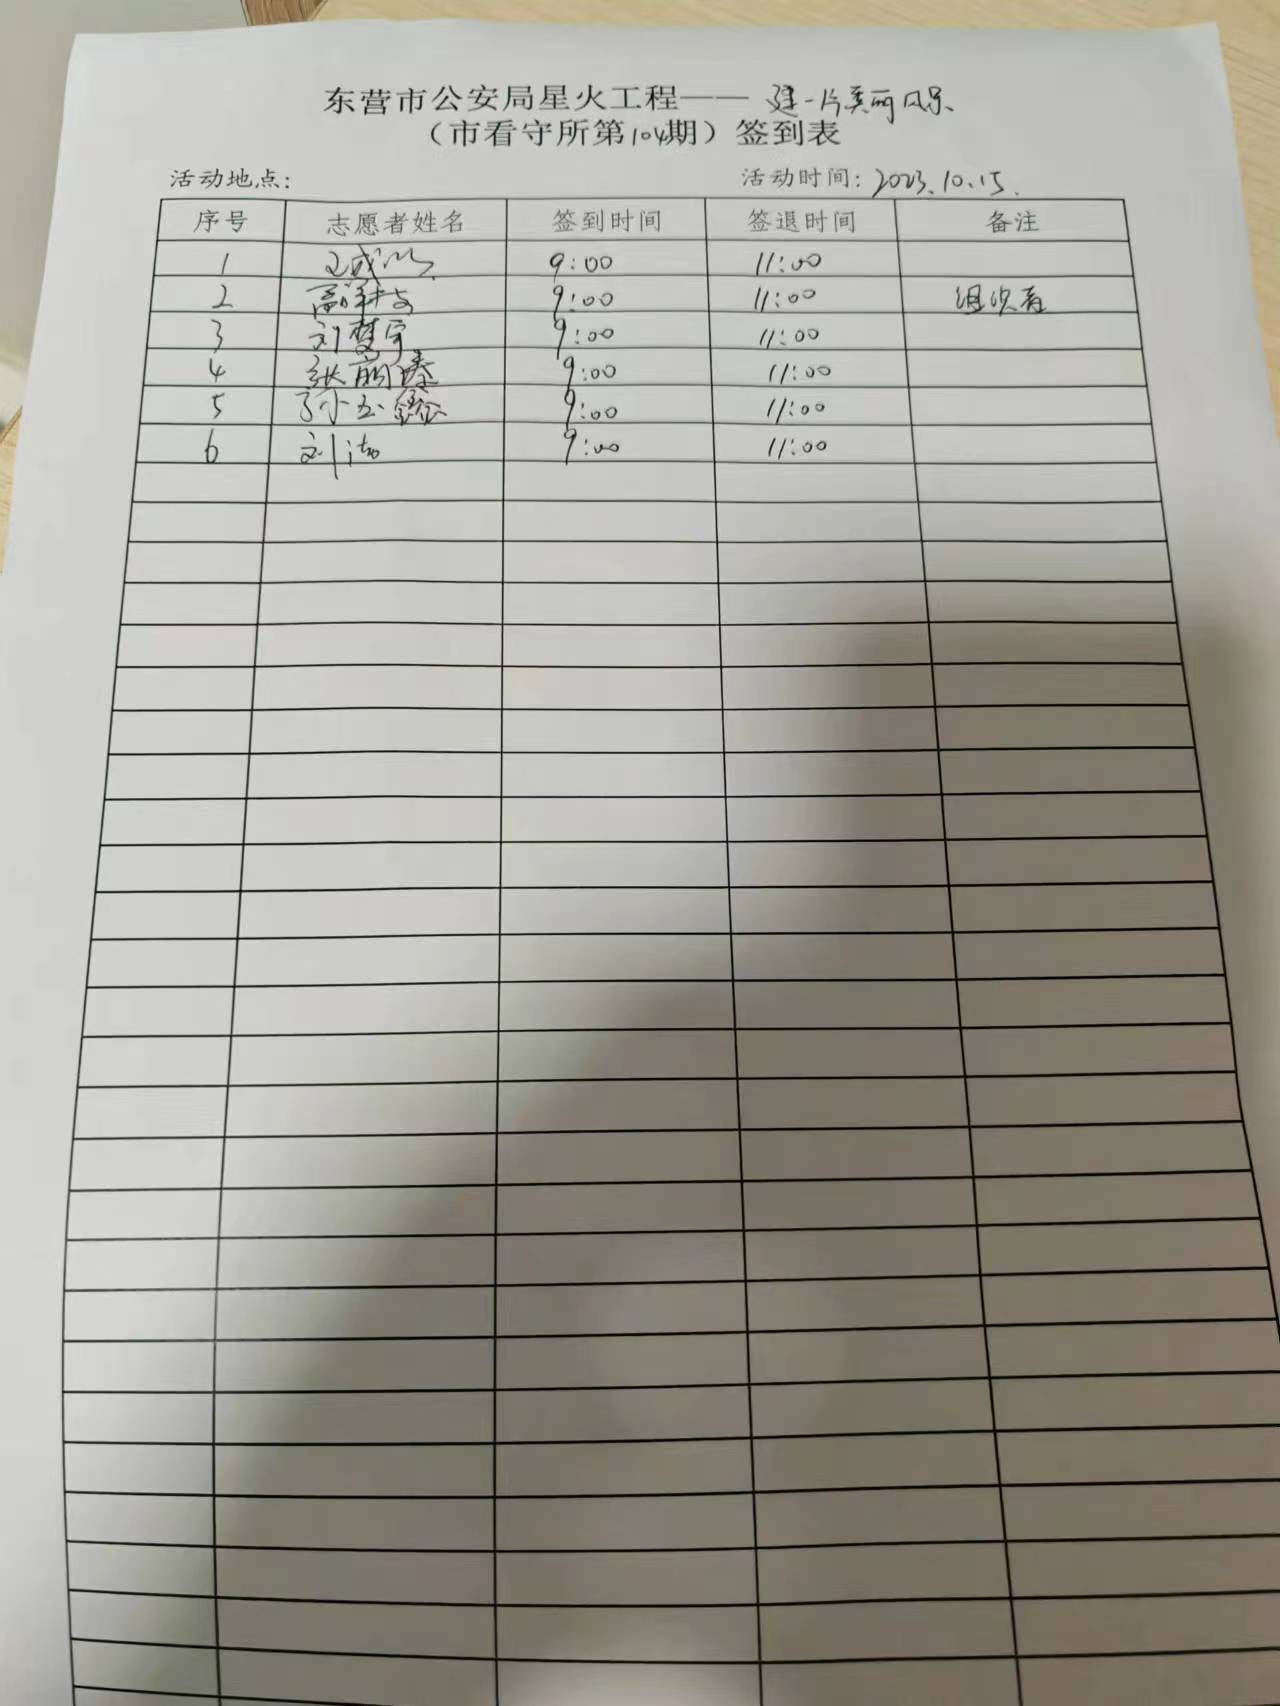 东营市公安局星火工程——建一片美丽风景
（市看守所第104期）签到表
活动地点： 活动时间：2023.10.15.
序号 志愿者姓名 签到时间 签退时间 备注
1 9:00 11:00
2 9:00 11:00 组织者
3 刘梦宇 9:00 11:00
4 张 9:00 11:00
5 孙玉鑫 9:00 11:00
6 刘 9:00 11:00